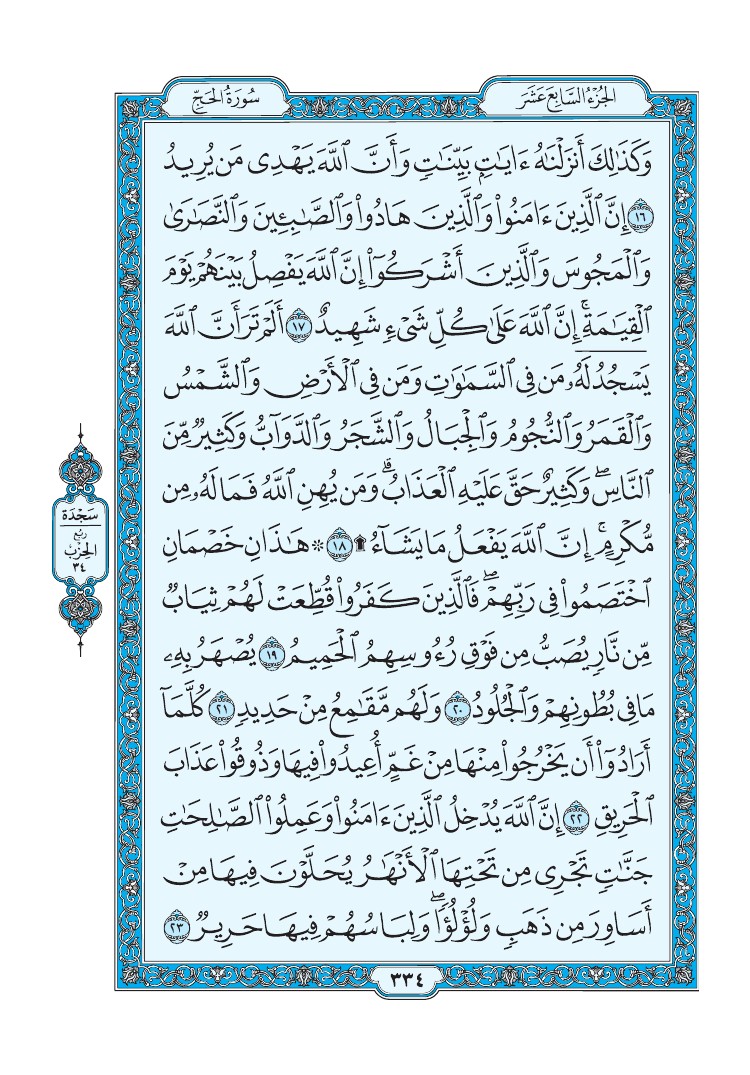 الجزء السابع عشر
سورة الحج
وَكَذَٰلِكَ أَنزَلْنَٰهُ ءَايَٰتِۭ بَيِّنَٰتٍ وَأَنَّ ٱللَّهَ يَهْدِى مَن يُرِيدُ
١٦ إِنَّ ٱلَّذِينَ ءَامَنُوا۟ وَٱلَّذِينَ هَادُوا۟ وَٱلصَّٰبِـِٔينَ وَٱلنَّصَٰرَىٰ
وَٱلْمَجُوسَ وَٱلَّذِينَ أَشْرَكُوٓا۟ إِنَّ ٱللَّهَ يَفْصِلُ بَيْنَهُمْ يَوْمَ
ٱلْقِيَٰمَةِۚ إِنَّ ٱللَّهَ عَلَىٰ كُلِّ شَىْءٍ شَهِيدٌ ١٧ أَلَمْ تَرَ أَنَّ ٱللَّهَ
يَسْجُدُ لَهُۥ مَن فِى ٱلسَّمَٰوَٰتِ وَمَن فِى ٱلْأَرْضِ وَٱلشَّمْسُ
وَٱلْقَمَرُ وَٱلنُّجُومُ وَٱلْجِبَالُ وَٱلشَّجَرُ وَٱلدَّوَآبُّ وَكَثِيرٌ مِّنَ
ٱلنَّاسِۖ وَكَثِيرٌ حَقَّ عَلَيْهِ ٱلْعَذَابُۗ وَمَن يُهِنِ ٱللَّهُ فَمَا لَهُۥ مِن
مُّكْرِمٍۚ إِنَّ ٱللَّهَ يَفْعَلُ مَا يَشَآءُ ۩ ١٨ ۞ هَٰذَانِ خَصْمَانِ
ٱخْتَصَمُوا۟ فِى رَبِّهِمْۖ فَٱلَّذِينَ كَفَرُوا۟ قُطِّعَتْ لَهُمْ ثِيَابٌ
مِّن نَّارٍ يُصَبُّ مِن فَوْقِ رُءُوسِهِمُ ٱلْحَمِيمُ ١٩ يُصْهَرُ بِهِۦ
مَا فِى بُطُونِهِمْ وَٱلْجُلُودُ ٢٠ وَلَهُم مَّقَٰمِعُ مِنْ حَدِيدٍ ٢١ كُلَّمَآ
أَرَادُوٓا۟ أَن يَخْرُجُوا۟ مِنْهَا مِنْ غَمٍّ أُعِيدُوا۟ فِيهَا وَذُوقُوا۟ عَذَابَ
ٱلْحَرِيقِ ٢٢ إِنَّ ٱللَّهَ يُدْخِلُ ٱلَّذِينَ ءَامَنُوا۟ وَعَمِلُوا۟ ٱلصَّٰلِحَٰتِ
جَنَّٰتٍ تَجْرِى مِن تَحْتِهَا ٱلْأَنْهَٰرُ يُحَلَّوْنَ فِيهَا مِنْ
أَسَاوِرَ مِن ذَهَبٍ وَلُؤْلُؤًاۖ وَلِبَاسُهُمْ فِيهَا حَرِيرٌ ٢٣
سجدة
ربع
الحزب
٣٤
٣٣٤